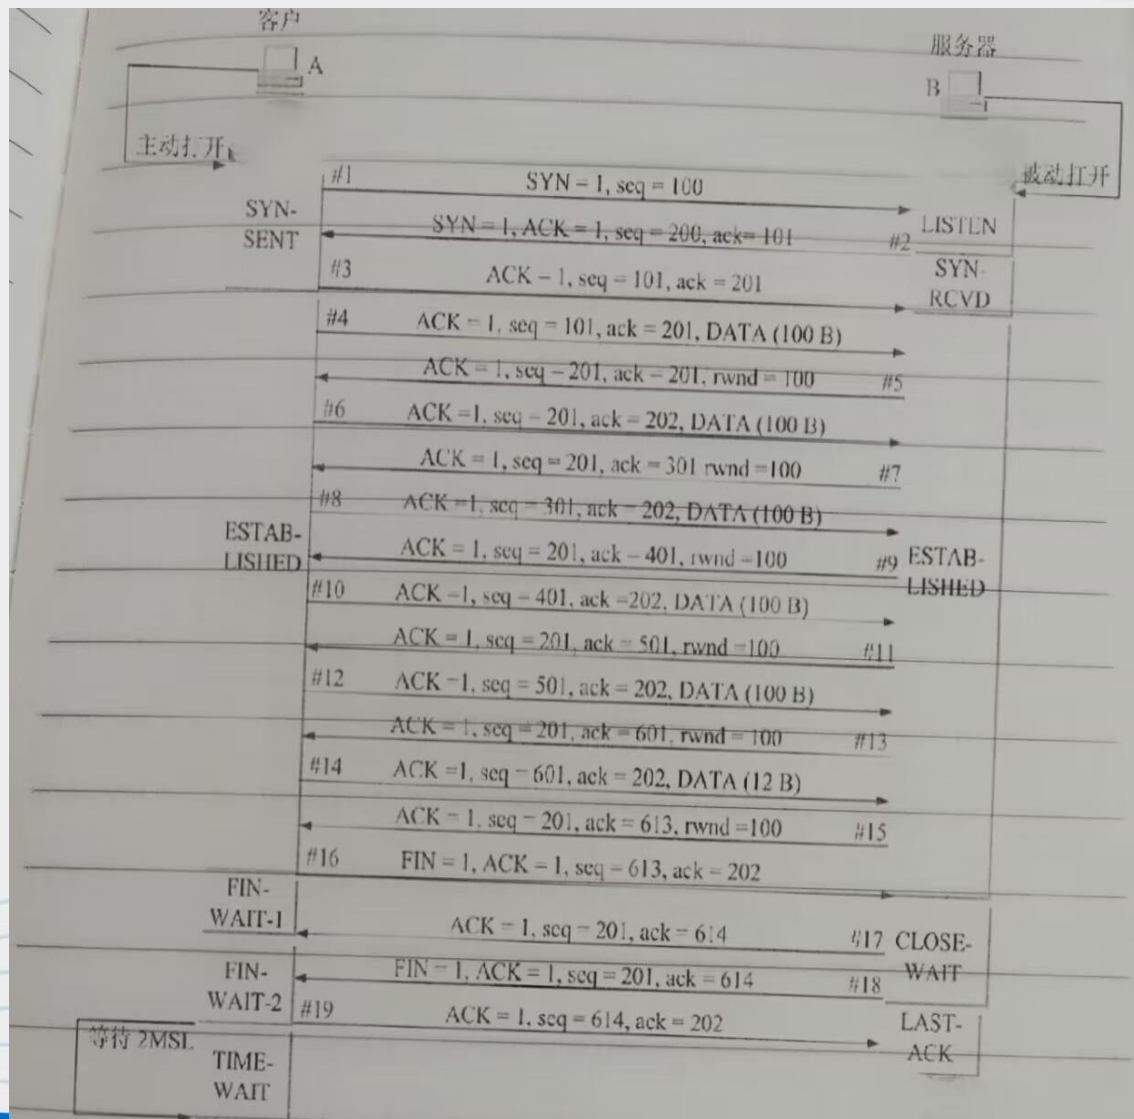 客户
服务器
A
B
主动打开
被动打开
#1 SYN = 1, seq = 100
SYN-
SENT
LISTEN
SYN = 1, ACK = 1, seq = 200, ack= 101 #2
SYN-
RCVD
#3 ACK = 1, seq = 101, ack = 201
#4 ACK = 1, seq = 101, ack = 201, DATA (100 B)
ACK = 1, seq = 201, ack = 201, rwnd = 100 #5
#6 ACK =1, seq = 201, ack = 202, DATA (100 B)
ACK = 1, seq = 201, ack = 301 rwnd =100 #7
#8 ACK =1, seq = 301, ack = 202, DATA (100 B)
ESTAB-
LISHED
ACK = 1, seq = 201, ack = 401, rwnd =100 #9
ESTAB-
LISHED
#10 ACK =1, seq = 401, ack =202, DATA (100 B)
ACK = 1, seq = 201, ack = 501, rwnd =100 #11
#12 ACK =1, seq = 501, ack = 202, DATA (100 B)
ACK = 1, seq = 201, ack = 601, rwnd = 100 #13
#14 ACK =1, seq = 601, ack = 202, DATA (12 B)
ACK = 1, seq = 201, ack = 613, rwnd =100 #15
#16 FIN = 1, ACK = 1, seq = 613, ack = 202
FIN-
WAIT-1
ACK = 1, seq = 201, ack = 614 #17
CLOSE-
WAIT
FIN = 1, ACK = 1, seq = 201, ack = 614 #18
FIN-
WAIT-2
#19 ACK = 1, seq = 614, ack = 202
LAST-
ACK
等待 2MSL
TIME-
WAIT